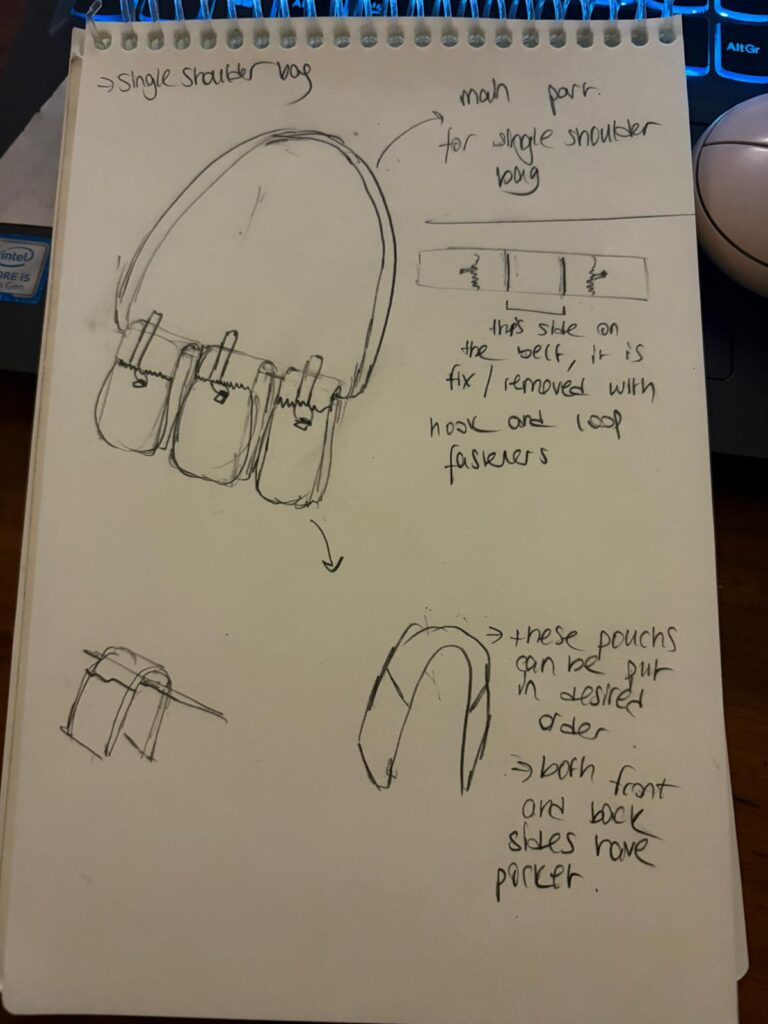 → single shoulder bag
main part.
for single shoulder
bag
this side on
the belt, it is
fix / removed with
hook and loop
fasteners
→ these pouchs
can be put
in desired
order.
→ both front
and back
sides have
pocket.
AltGr
intel
CORE i5
Gen